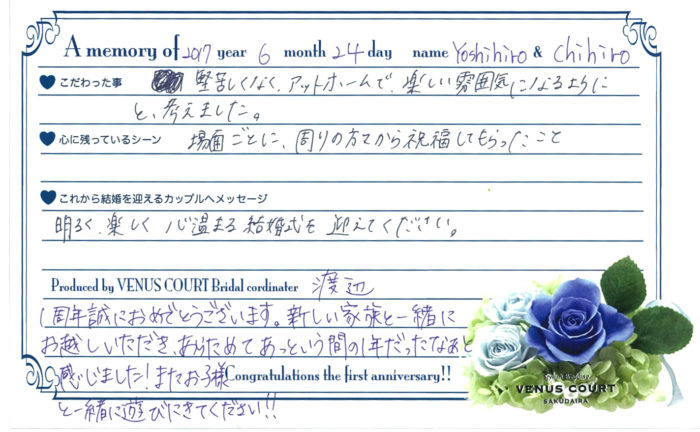 A memory of 2017 year 6 month 24 day name Yoshihiro & Chihiro
こだわった事 堅苦しくなく、アットホームで、楽しい雰囲気になるように
と、考えました。
心に残っているシーン 場面ごとに、周りの方てから祝福してもらったこと
これから結婚を迎えるカップルへメッセージ
明るく、楽しく 心温まる結婚式を 迎えてください。
Produced by VENUS COURT Bridal cordinater 渡辺
1周年誠におめでとうございます。新しい家族と一緒に
お越しいただき、あらためてあっという間の1年だったなぁと
感じました!またお子様
Congratulations the first anniversary!!
と一緒に遊びにきてください!!
VENUS COURT
SAKUDAIRA